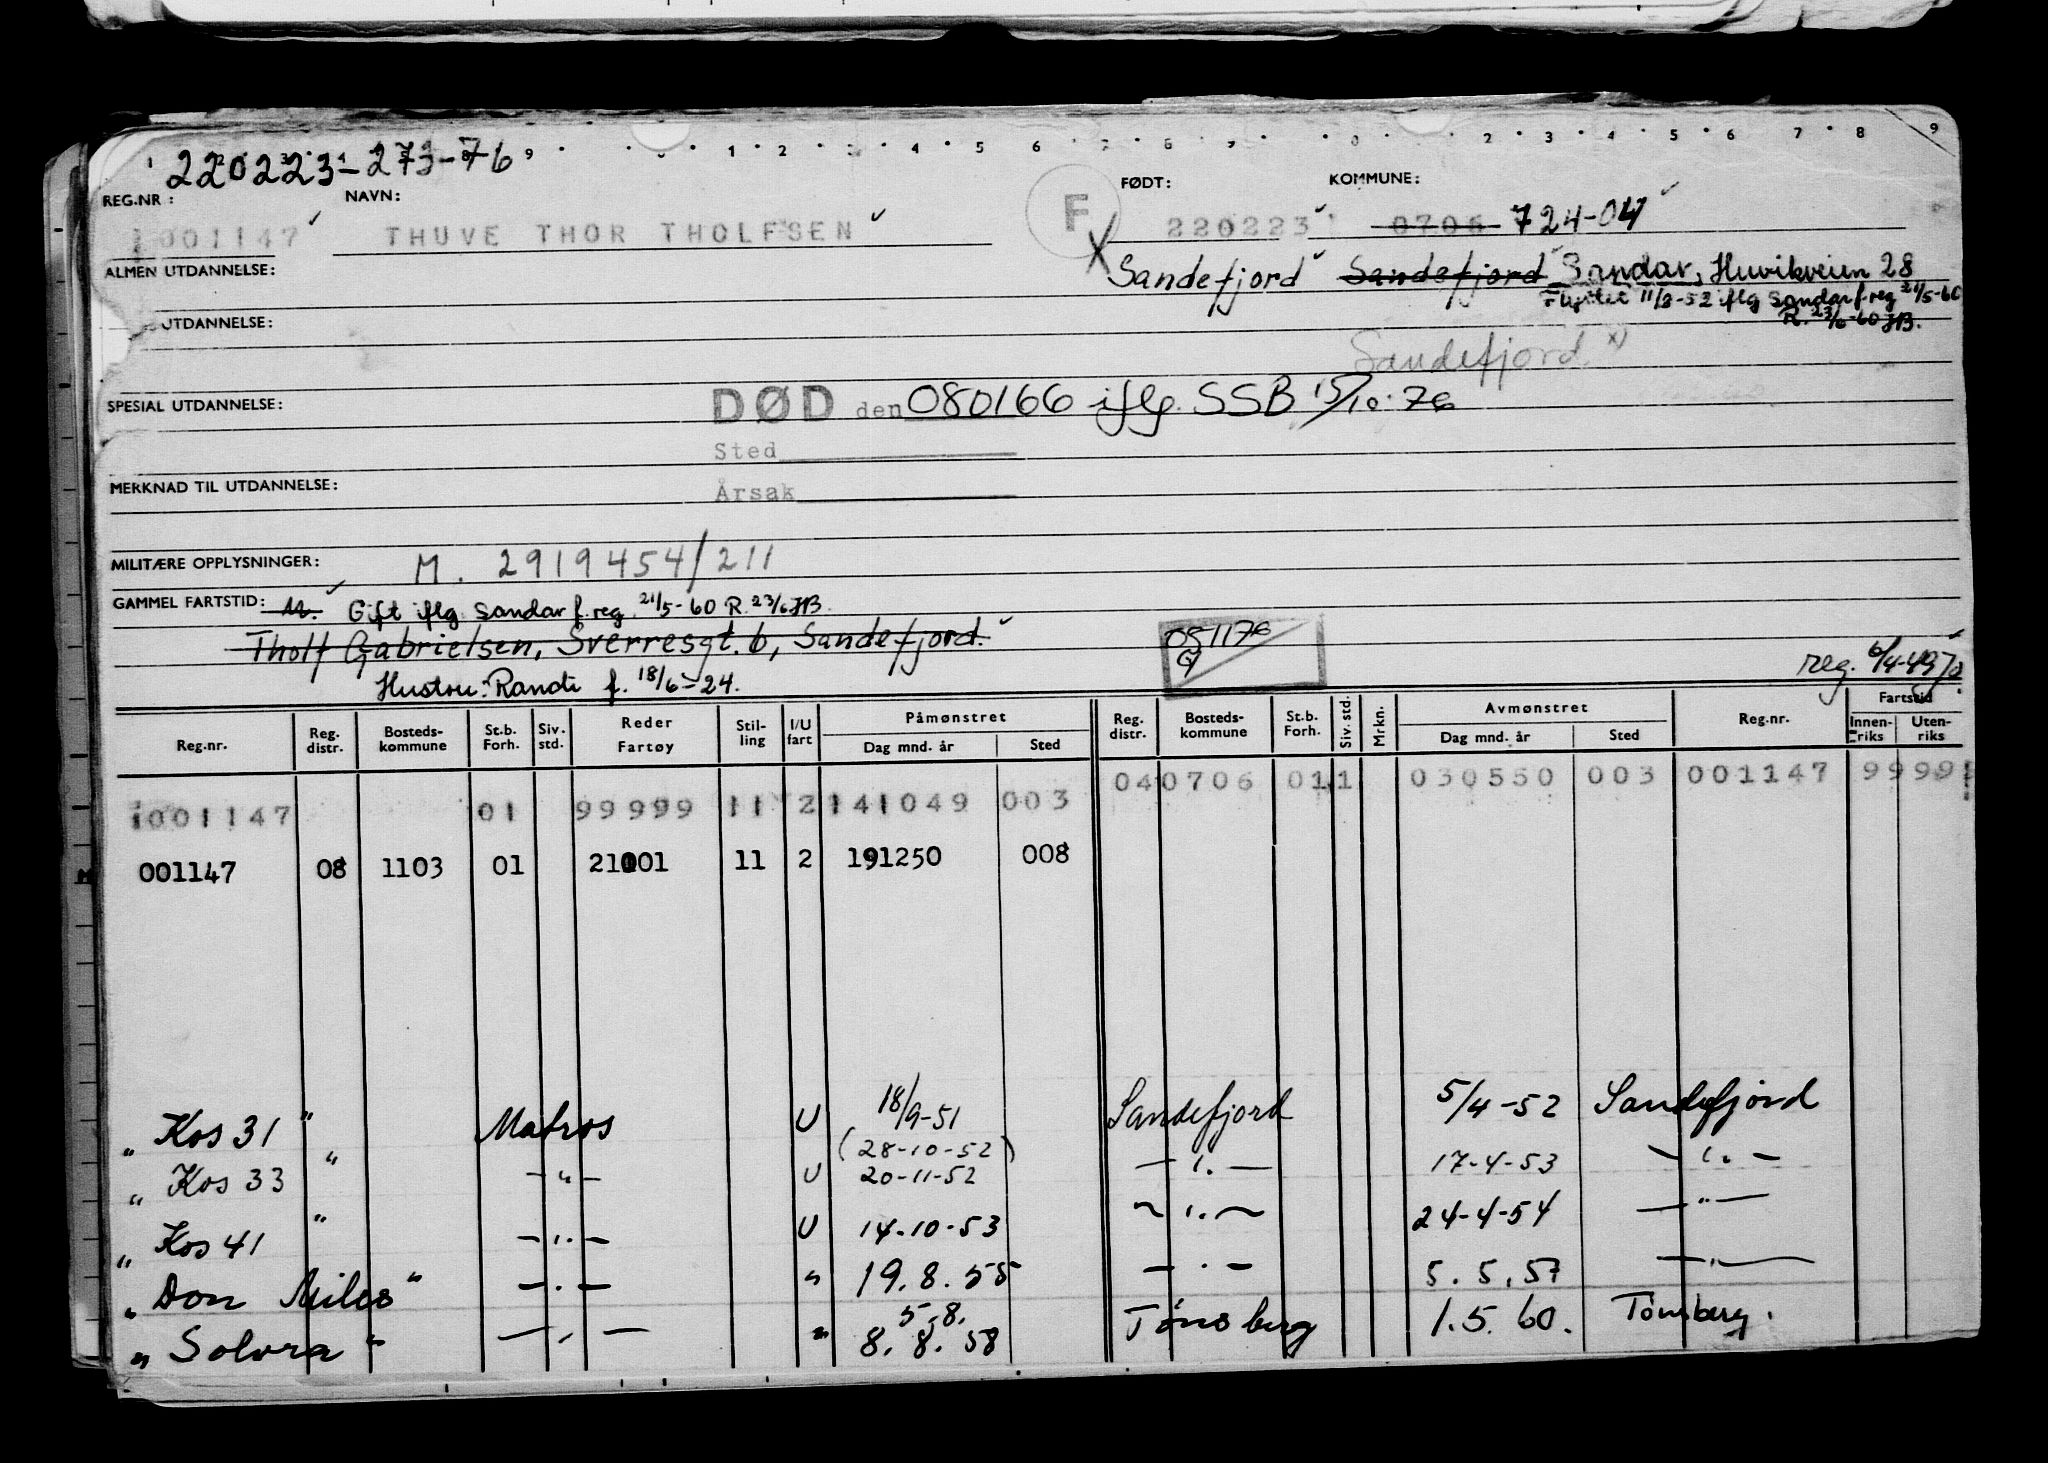 220223-273-76
REG.NR: NAVN: FØDT: KOMMUNE:
1001147 THUVE THOR THOLFSEN F 220223 0706 724-04
ALMEN UTDANNELSE: X Sandefjord Sandefjord Sandar, Huvikveien 28
Flyttet 11/3-52 iflg Sandar f.reg 21/5-60
UTDANNELSE: R. 23/6-60 HB.
Sandefjord x)
SPESIAL UTDANNELSE: DØD den 080166 iflg. SSB 15/10-76
Sted
MERKNAD TIL UTDANNELSE: Årsak
MILITÆRE OPPLYSNINGER: M. 2919454/211
GAMMEL FARTSTID: u. Gift iflg Sandar f.reg. 21/5-60 R. 23/6 HB
Tholf Gabrielsen, Sverresgt. 6, Sandefjord. 051176
Hustru: Randi f. 18/6-24. reg. 6/4-49
Reg.nr. Reg. distr. Bosteds-kommune St.b. Forh. Siv. std. Reder Fartøy Stil-ling I/U fart Påmønstret Dag mnd. år Sted Reg. distr. Bosteds-kommune St.b. Forh. Siv. std. Mrkn. Avmønstret Dag mnd. år Sted Reg.nr. Fartstid Innen-riks Uten-riks
1001147 01 99999 11 2 141049 003 04 0706 01 1 030550 003 001147 9999
001147 08 1103 01 21001 11 2 191250 008
" Kos 31 " Matros U 18/9-51 Sandefjord 5/4-52 Sandefjord
(28-10-52)
" Kos 33 " -"- U 20-11-52 -"- 17-4-53 -"-
" Kos 41 " -"- U 14-10-53 -"- 24-4-54 -"-
" Don Miles " -"- " 19.8.55 -"- 5.5.57 -"-
5.8.
" Solvra " -"- " 8.8.58 Tønsberg 1.5.60. Tønsberg.